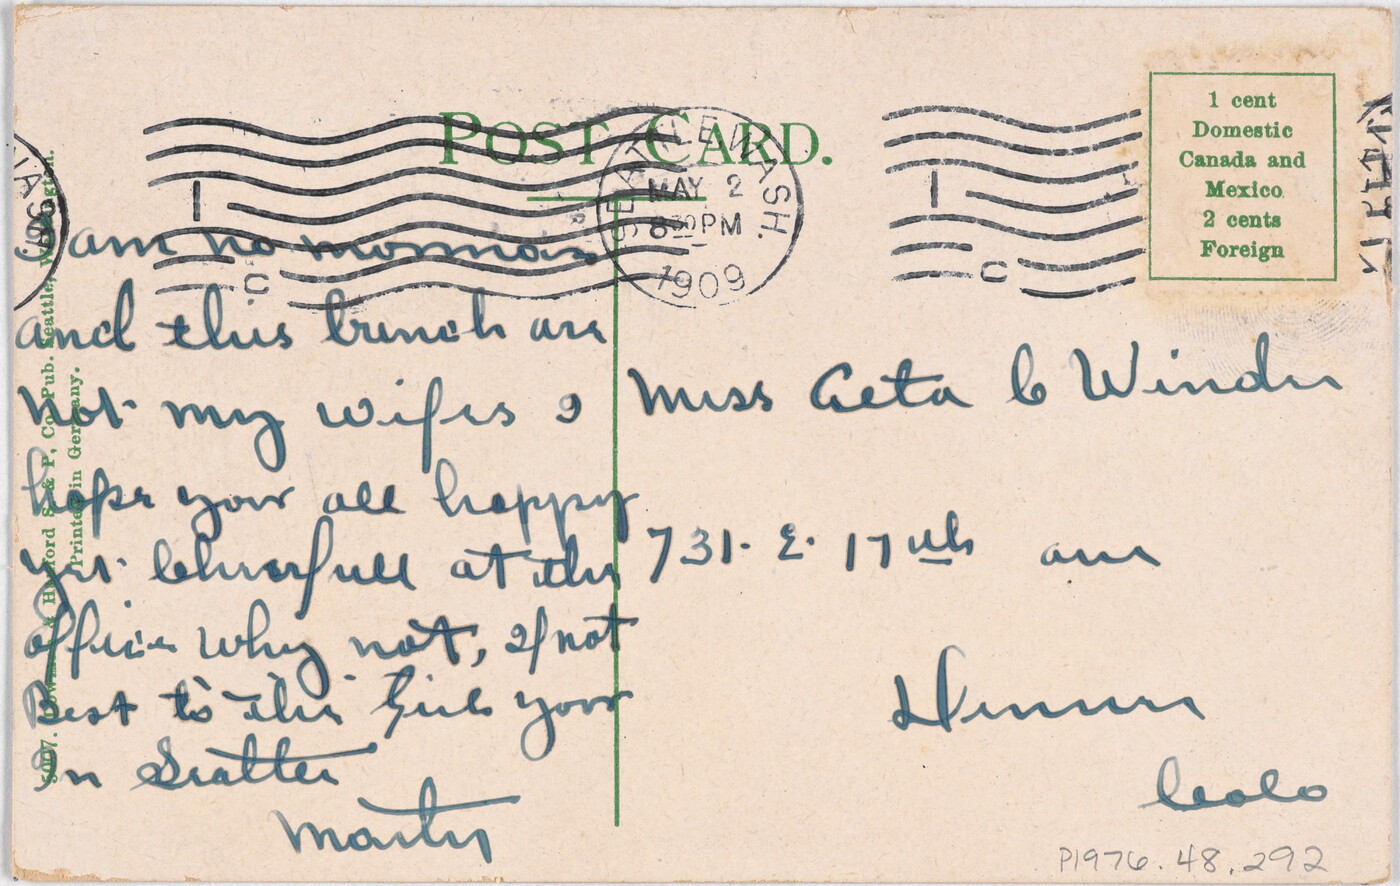 POST CARD.
1 cent
Domestic
Canada and
Mexico
2 cents
Foreign
SEATTLE WASH.
MAY 2
8 30 PM
1909
I C
I C
I am no mormon
and this bunch are
not my wifes I
hope your all happy
yet Cheerfull at the
office why not, If not
Best to the Girls your
In Seattle
Marty
Miss Aeta C Winder
731. E. 17th ave
Denver
Colo
Co. Pub. Seattle,
Printed in Germany.
P1976.48.292